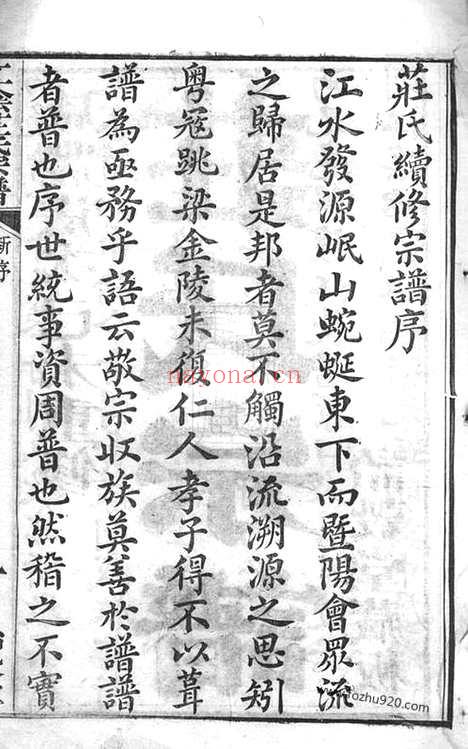 莊氏續修宗譜序
江水發源岷山蜿蜒東下而暨陽會眾流
之歸居是邦者莫不觸沿流溯源之思矧
粵寇跳梁金陵未復仁人孝子得不以葺
譜為亟務乎語云敬宗收族莫善於譜譜
者普也序世統事資周普也然稽之不實
新序
nayona.cn
Tozhu920.com